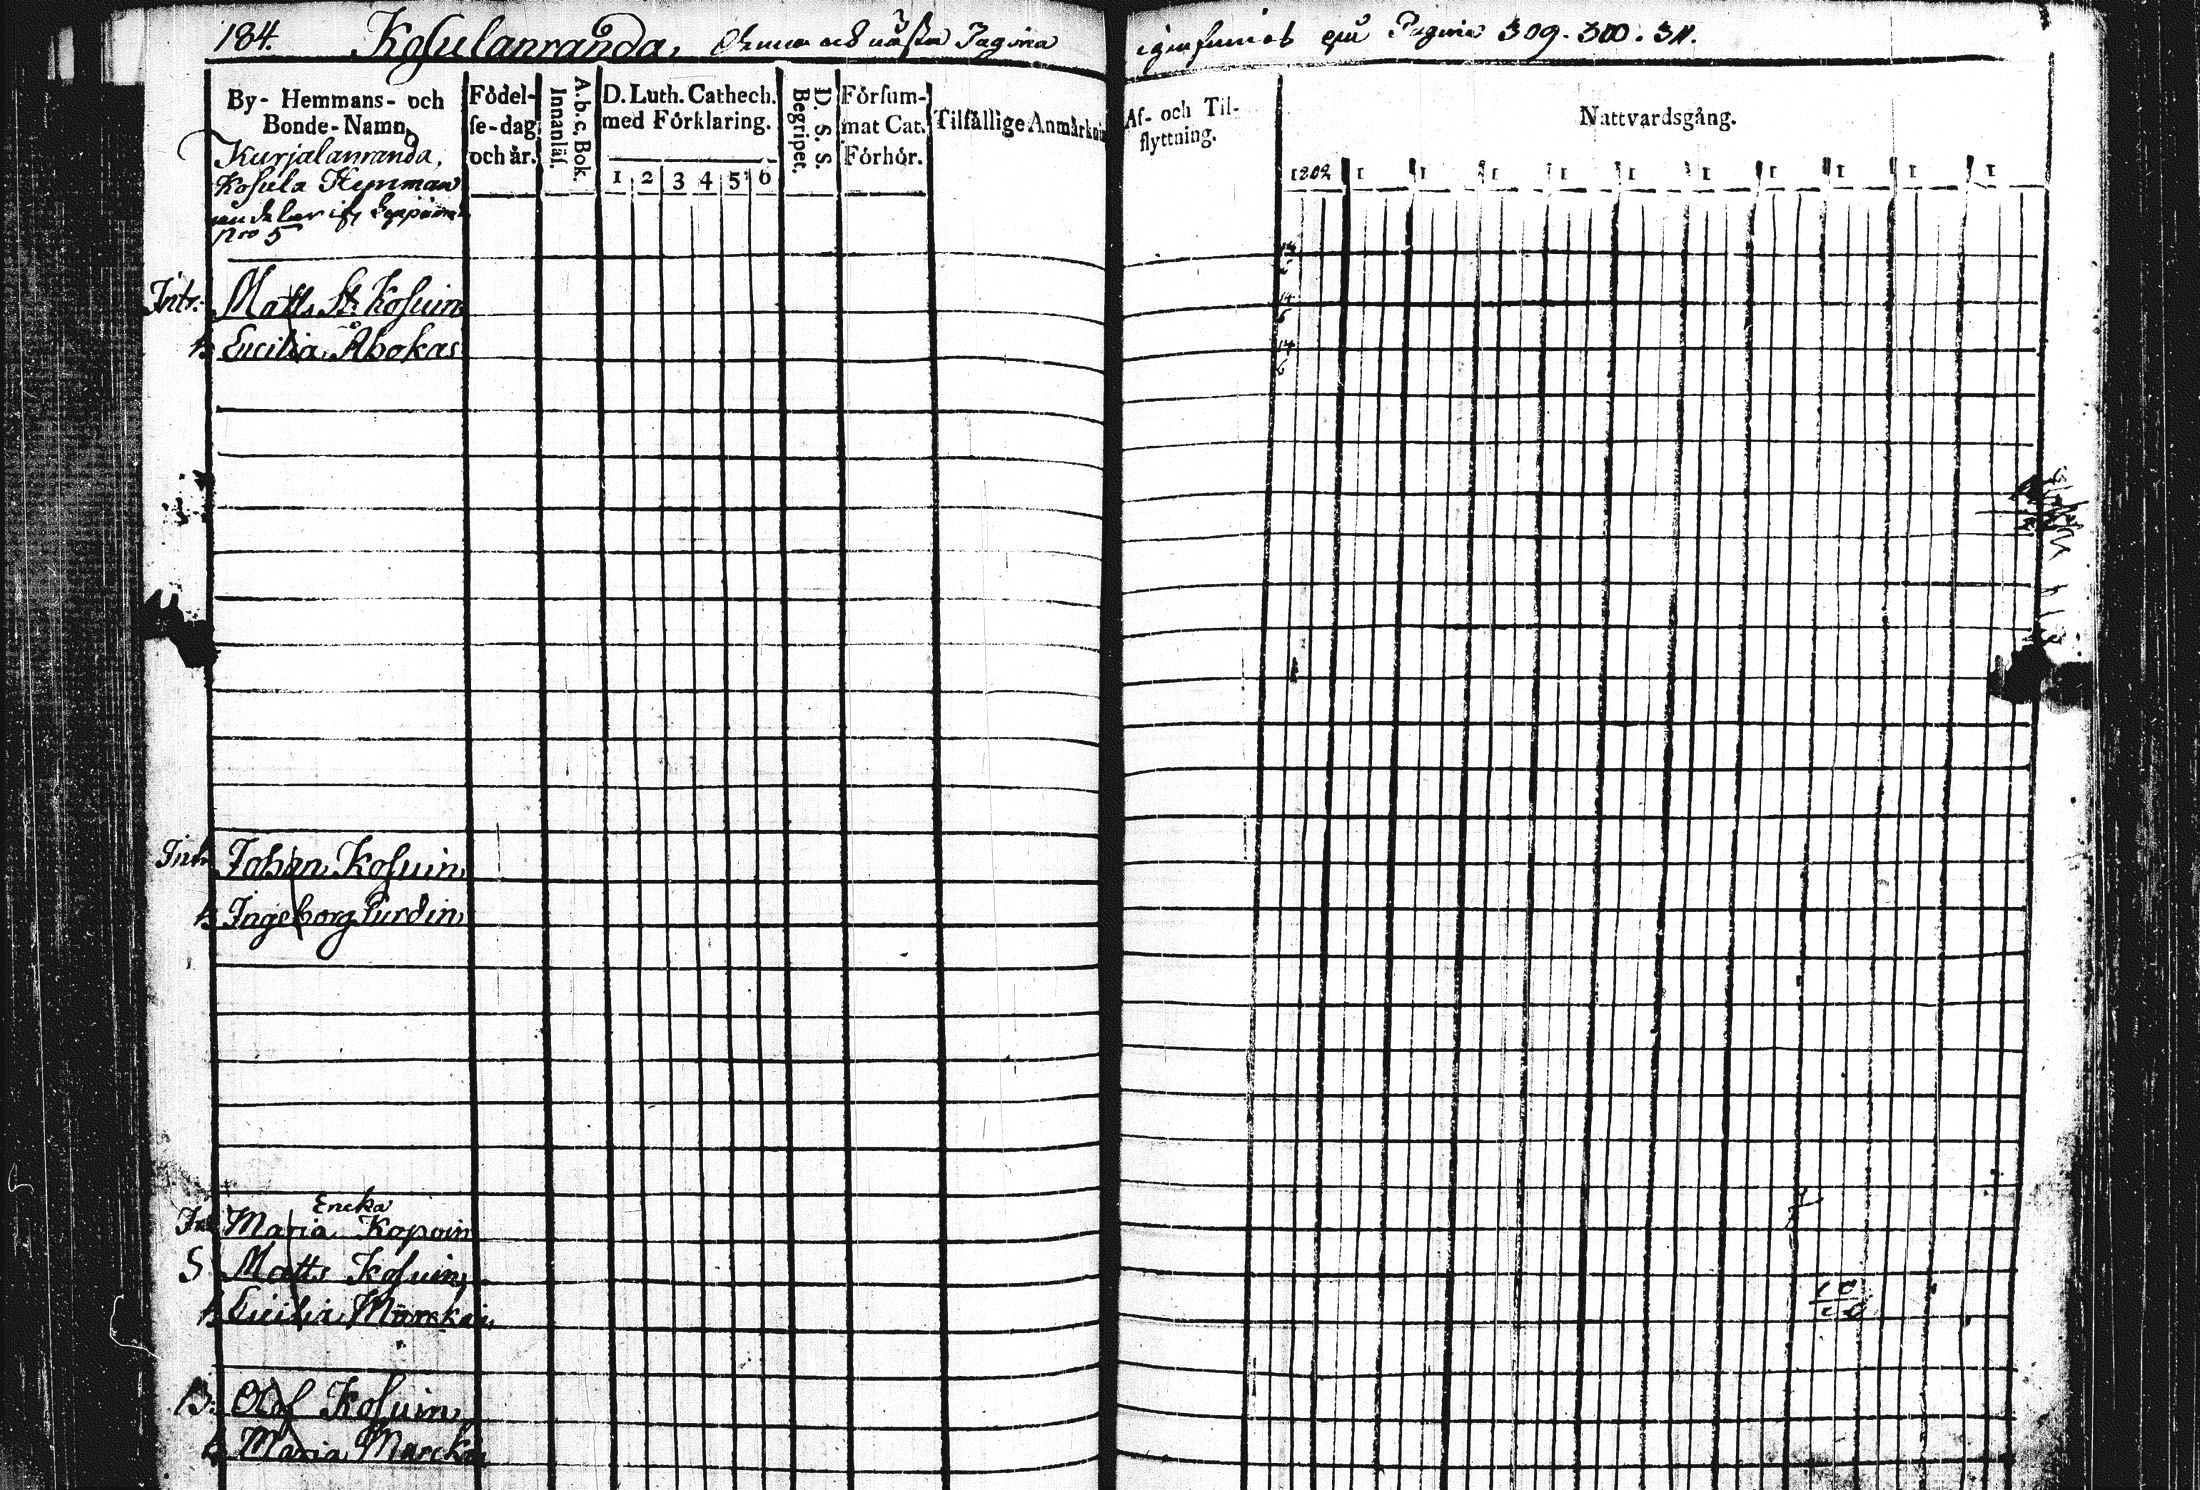 184. Kosulanranda, Denna och nästa Pagina igenfunnes på Pagina 309. 310. 311.
By- Hemmans- och Bonde-Namn,
Födel-se-dag och år.
A.b.c, Bok. Innanläs.
D. Luth. Cathech. med Förklaring.
1 2 3 4 5 6
D. S. S. Begripet.
Försum-mat Cat. Förhör.
Tilfällige Anmärkni
Af- och Til-flyttning.
Nattvardsgång.
1802 1 1 1 1 1 1 1 1 1 1
Kurjalanranda,
Kosula Hynman
Nro 5
Intr. Matts Kosuin
h Cecilia Åbokas
14
6
14
6
Inh Johan Kosuin
h Ingeborg Purdin
Encka
Maria Kopoin
S Matts Kosuin
h Cicilia Marckain
10
10
B. Olof Kosuin
h Maria Marckain